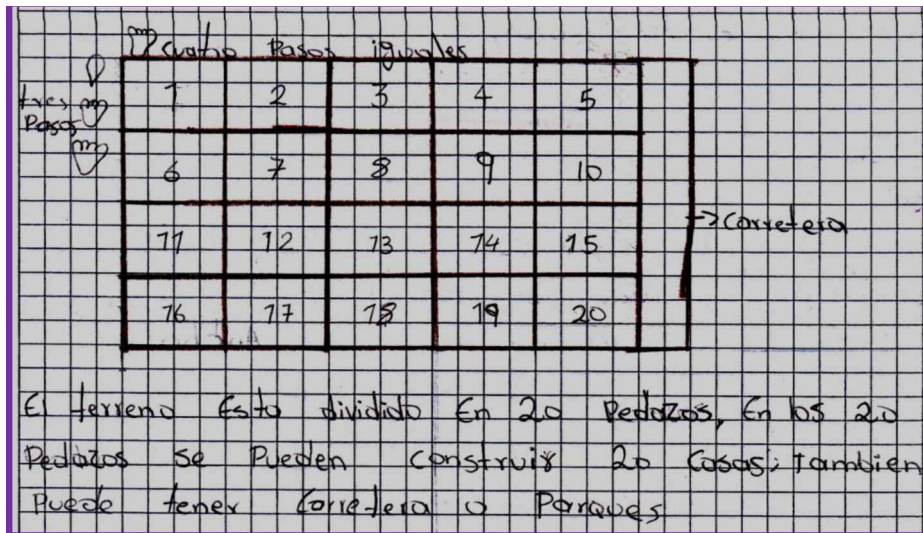 cuatro Pasos iguales
tres
Pasos
1 2 3 4 5
6 7 8 9 10
11 12 13 14 15
16 17 18 19 20
→ Carretera
El terreno Esta dividido En 20 Pedazos, En los 20
Pedazos se Pueden construir 20 Casas; Tambien
Puede tener Carretera o Parques